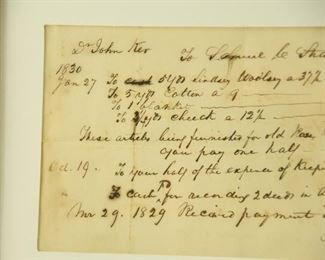 Dr John Ker To Samuel C
1830
Jan 27 To 5 yds Lindsey Woolsey a 37½
To 5 yds Cotton a 9
To 1 Blanket
To 2½ yds check a 12½
These articles being furnished for old
you pay one half
Oct. 19. To your half of the expence of
To cash pd for recording 2 deeds in
Nov 29. 1829 Received payment